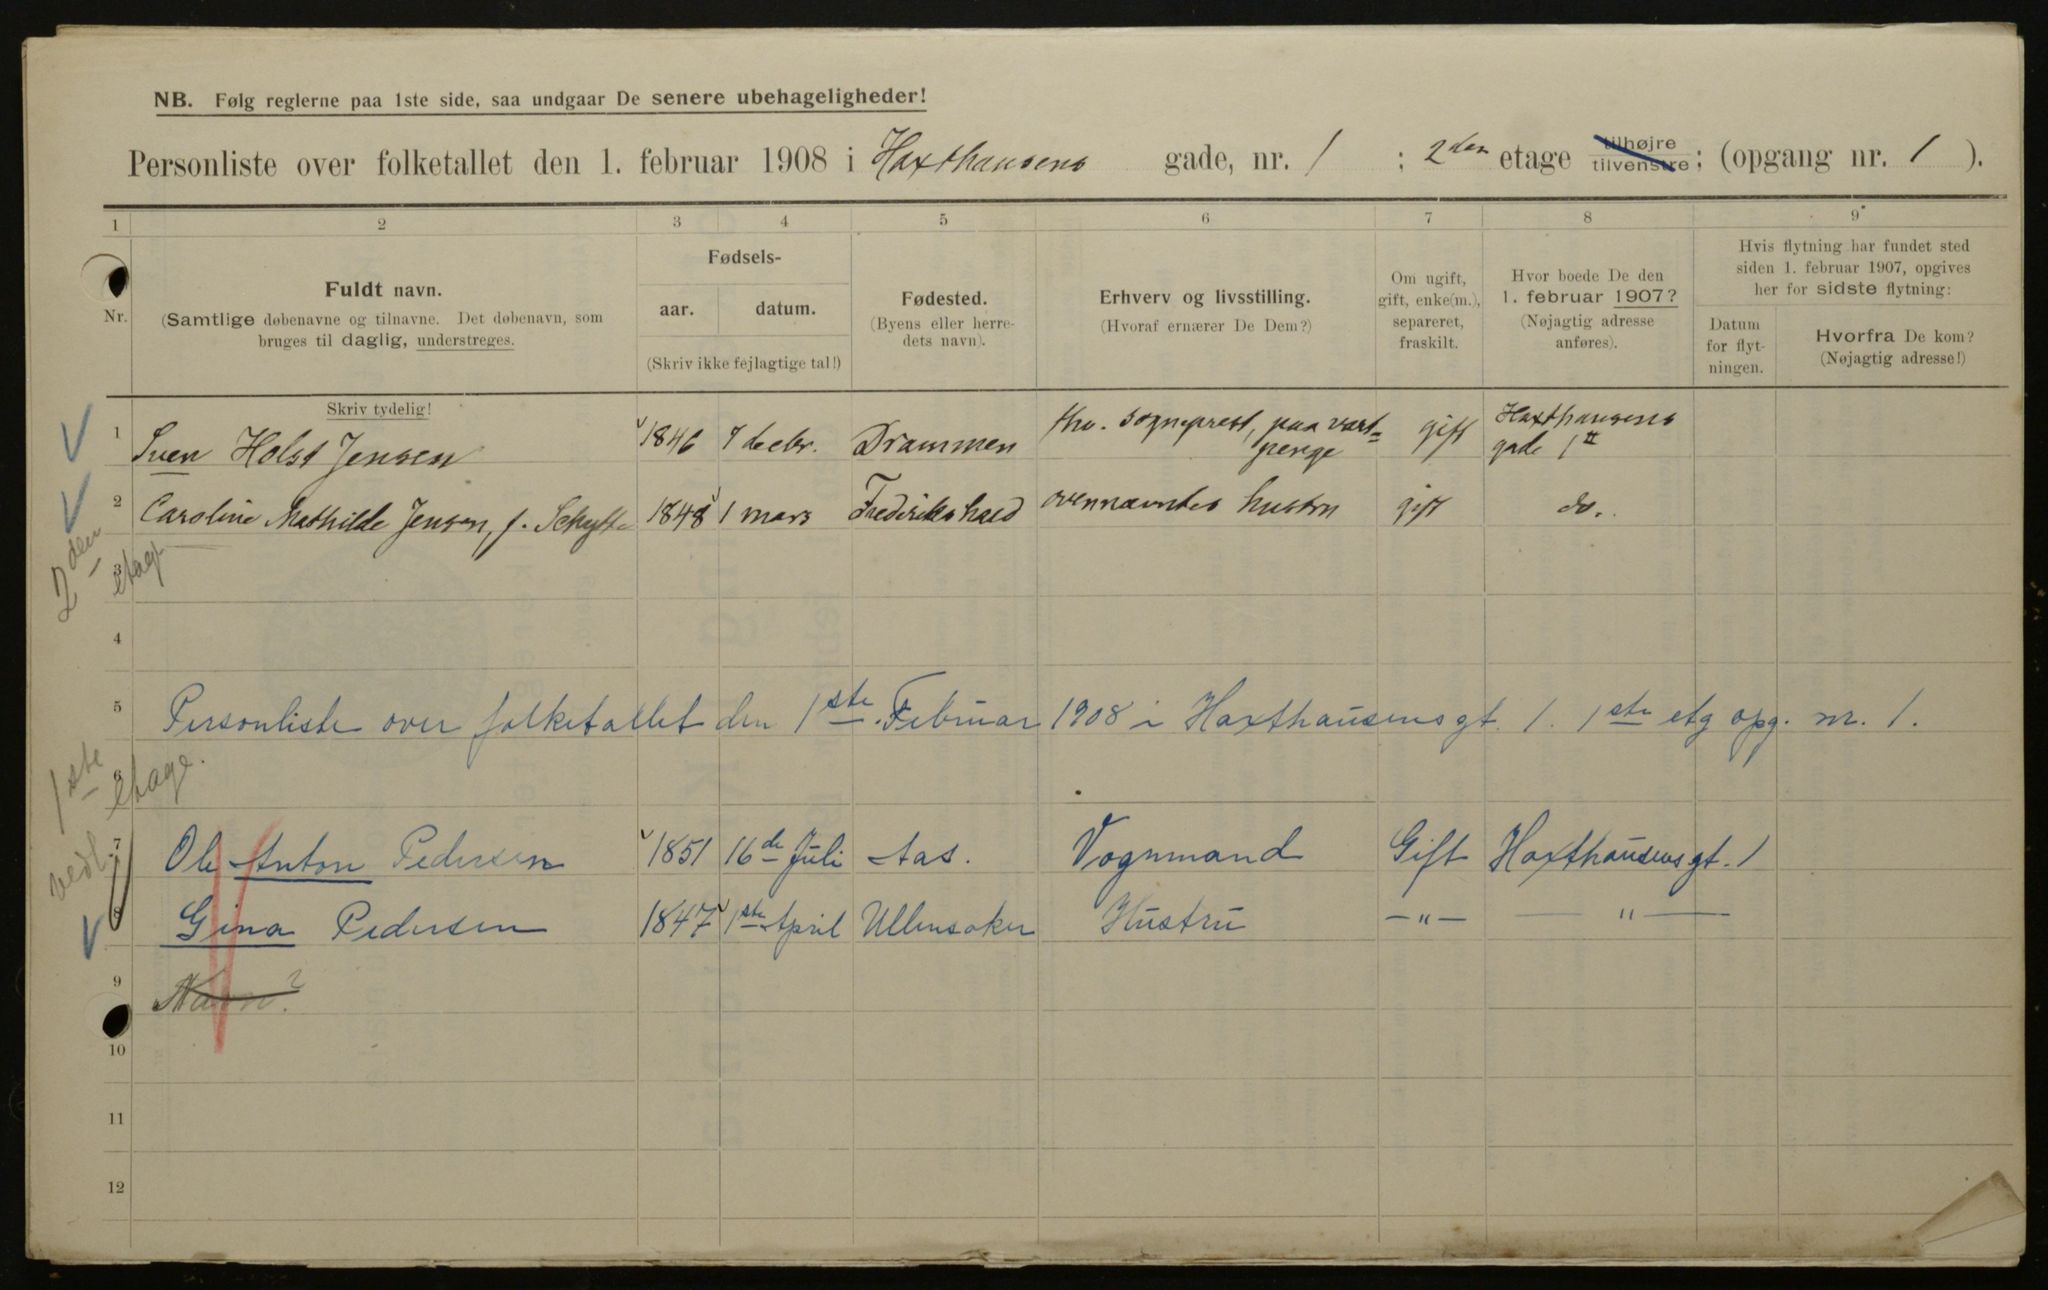 NB. Følg reglerne paa 1ste side, saa undgaar De senere ubehageligheder!
Personliste over folketallet den 1. februar 1908 i Haxthausens gade, nr. 1 ; 2den etage tilhøjre tilvenstre ; (opgang nr. 1 ).
1 2 3 4 5 6 7 8 9
Nr.
Fuldt navn.
(Samtlige døbenavne og tilnavne. Det døbenavn, som
bruges til daglig, understreges.
Fødsels-
aar. datum.
(Skriv ikke fejlagtige tal!)
Fødested.
(Byens eller herre-
dets navn).
Erhverv og livsstilling.
(Hvoraf ernærer De Dem?)
Om ugift,
gift, enke(m.),
separeret,
fraskilt.
Hvor boede De den
1. februar 1907?
(Nøjagtig adresse
anføres).
Hvis flytning har fundet sted
siden 1. februar 1907, opgives
her for sidste flytning:
Datum
for flyt-
ningen.
Hvorfra De kom?
(Nøjagtig adresse!)
Skriv tydelig!
1 Sven Holst Jensen 1846 7 decbr. Drammen fhv. sogneprest, paa vart- penge gift Haxthausens gade 1 II
2 Caroline Mathilde Jensen, f. Schytte 1848 1 mars Frederikshald ovennævntes hustru gift do.
2den etage
3
4
5 Personliste over folketallet den 1ste Februar 1908 i Haxthausens gt. 1. 1ste etg opg. nr. 1.
1ste etage.
6
7 Ole Anton Pedersen 1851 16de Juli Aas. Vognmand Gift Haxthausens gt. 1
vedl.
8 Gina Pedersen 1847 1ste April Ullensaker Hustru —„— — „ —
9 Navn?
10
11
12